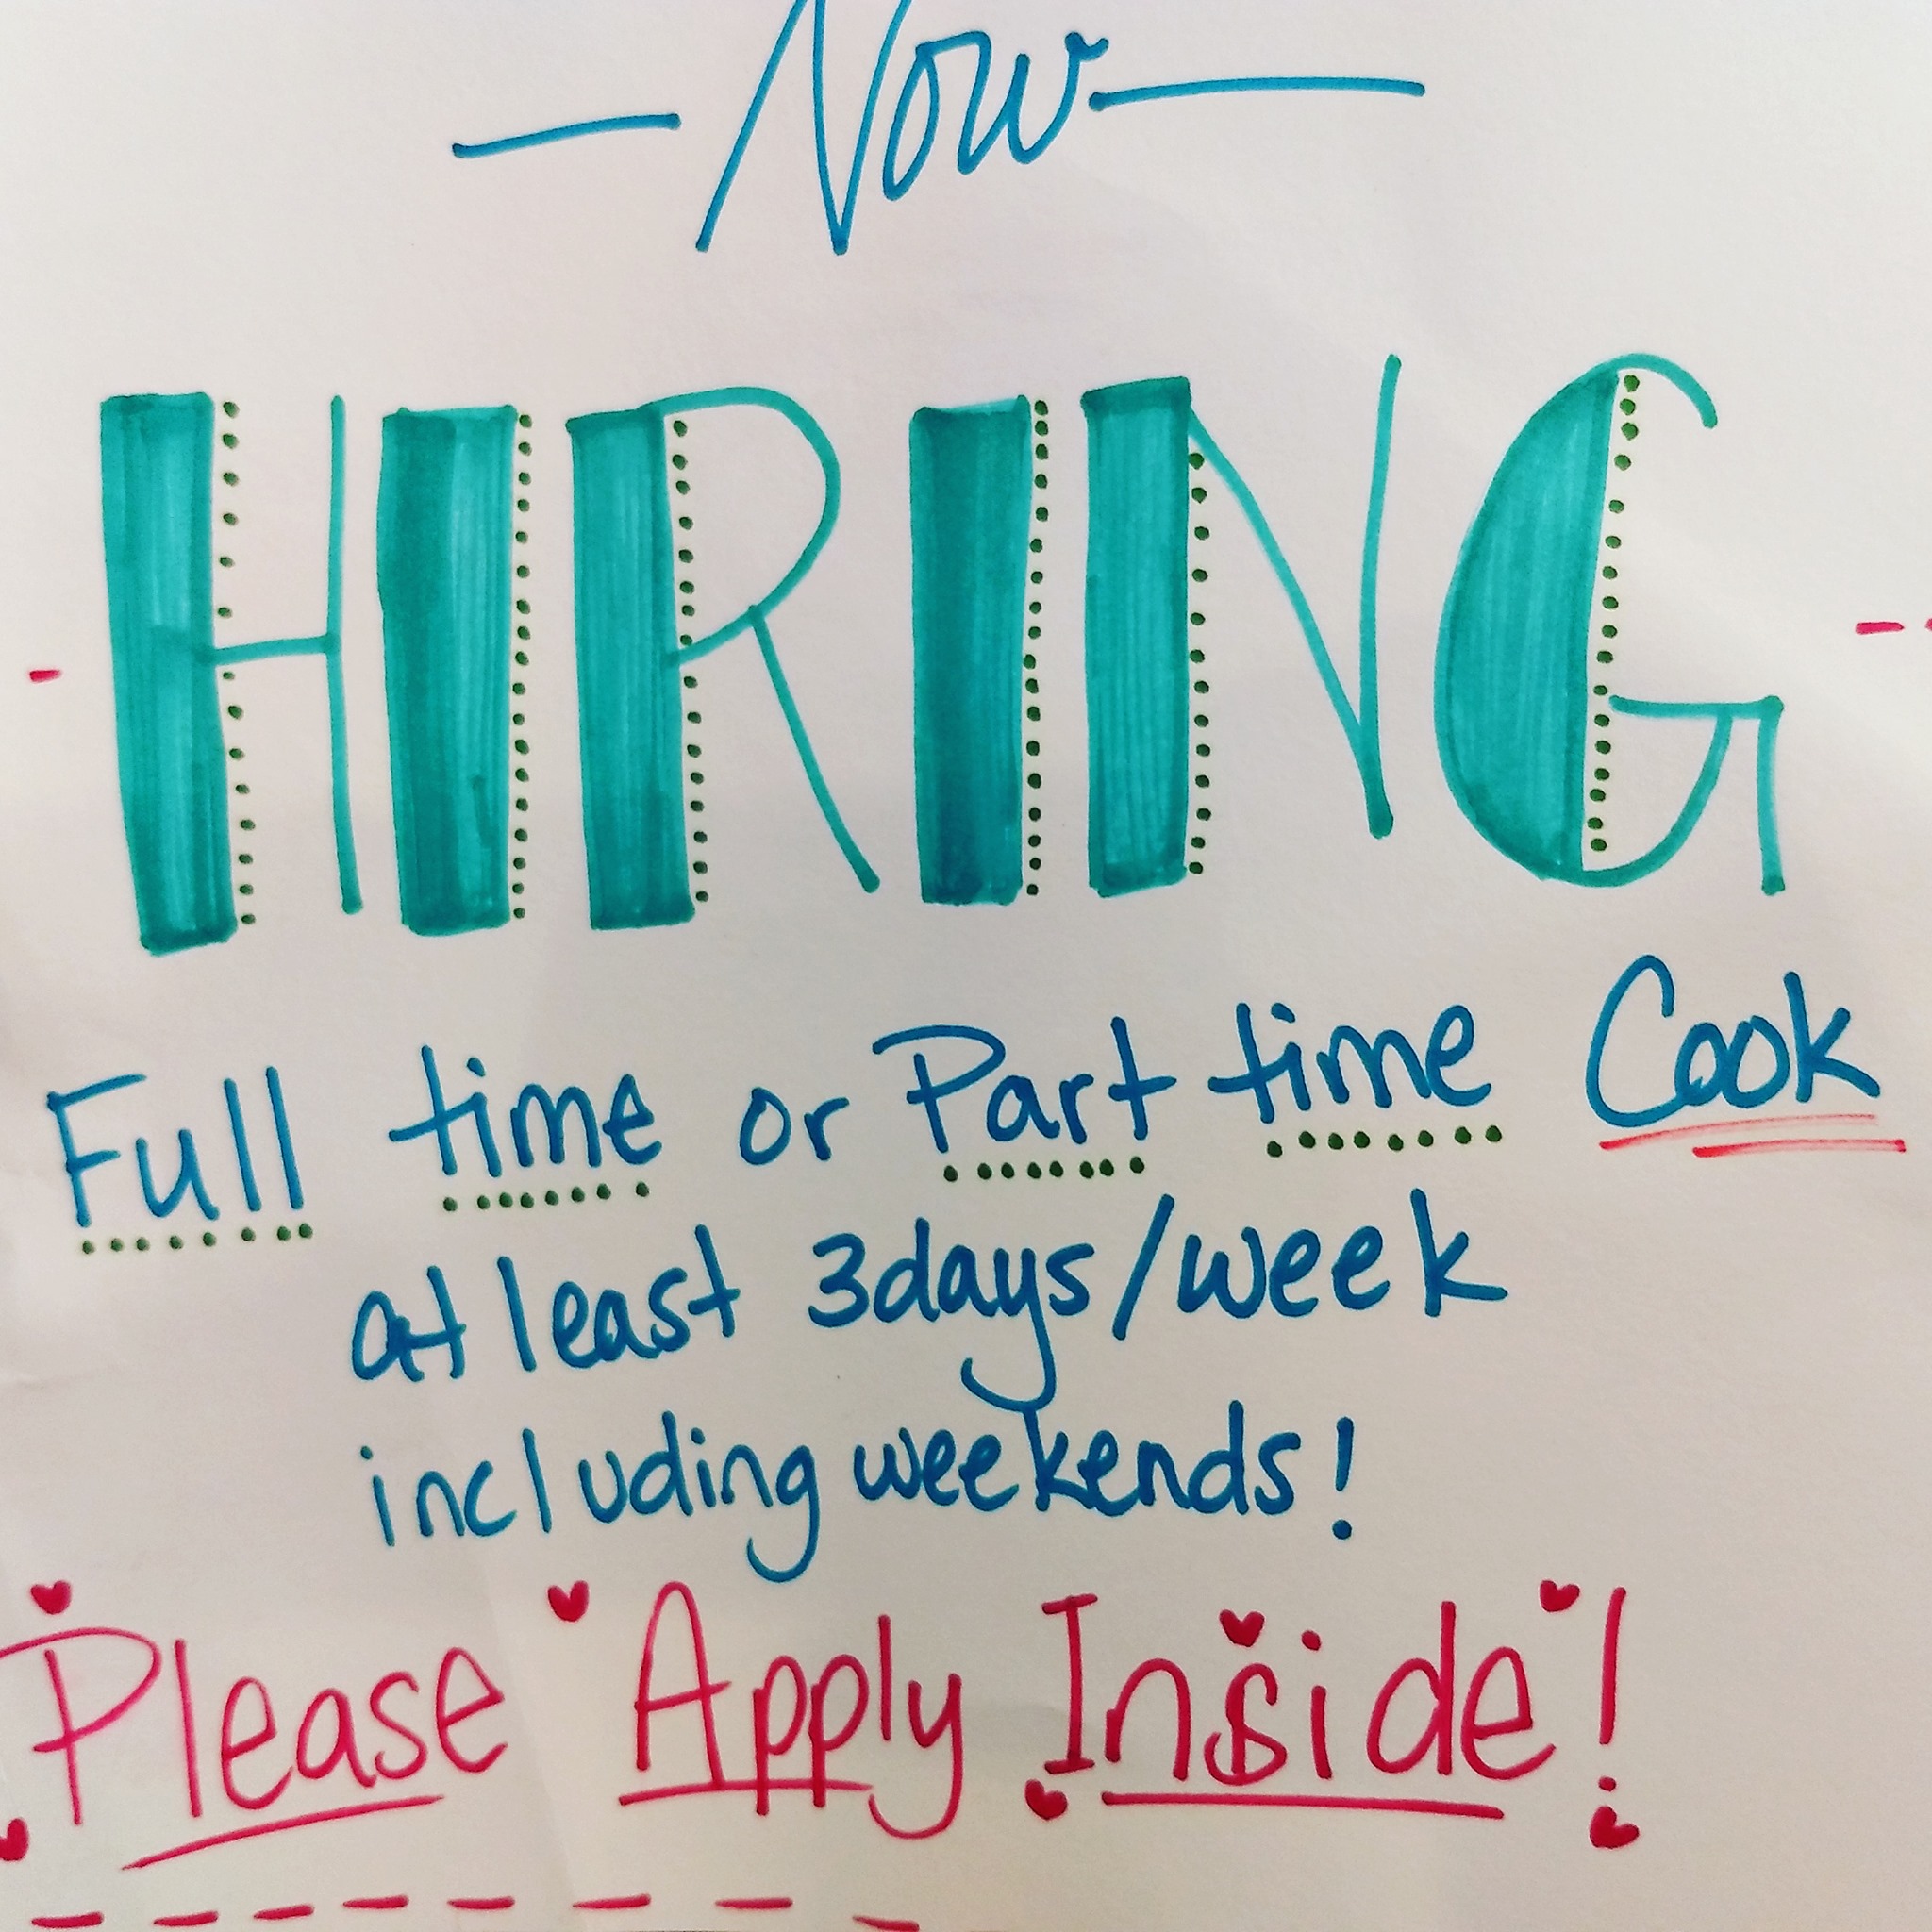 Now
HIRING
Full time or Part time Cook
at least 3days/week
including weekends!
Please Apply Inside!